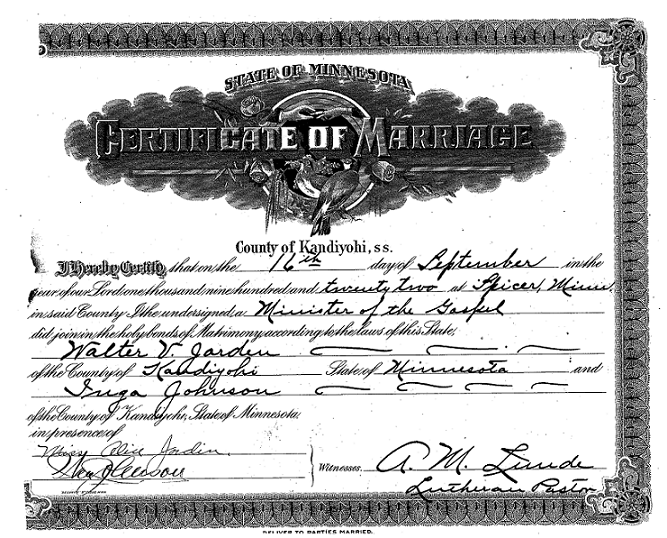 STATE OF MINNESOTA
CERTIFICATE OF MARRIAGE
County of Kandiyohi, s s.
I Hereby Certify that on the 16th day of September in the
year of our Lord one thousand nine hundred and twenty two at Spicer, Minn.
in said County I the undersigned a Minister of the Gospel
did join in the holy bonds of Matrimony according to the laws of this State,
Walter V. Jorden
of the County of Kandiyohi State of Minnesota and
Inga Johnson
of the County of Kandiyohi, State of Minnesota.
in presence of
Miss Alice Jorden
Witnesses. A. M. Lunde
Lutheran Pastor
DELIVER TO PARTIES MARRIED.